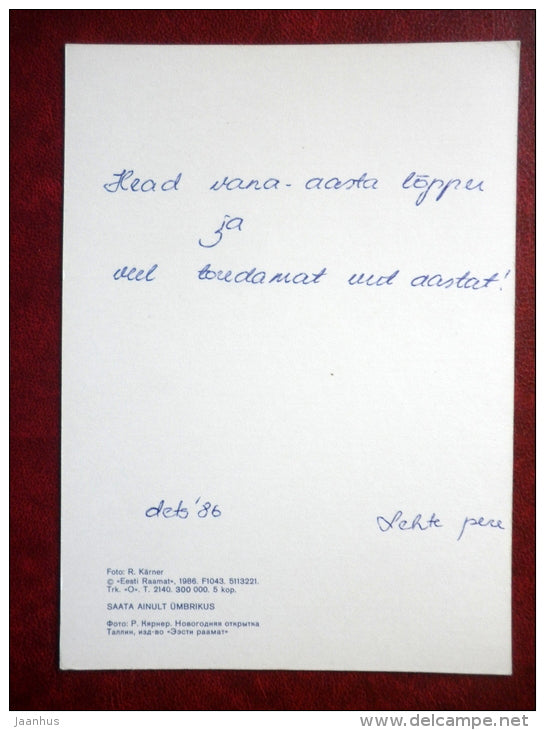 Head vana-aasta lõppu
ja
veel toredamat uut aastat!
dets '86
Lehte pere
Foto: R. Kärner
© «Eesti Raamat», 1986. F1043. 5113221.
Trk. «O». T. 2140. 300 000. 5 kop.
SAATA AINULT ÜMBRIKUS
Фото: Р. Кярнер. Новогодняя открытка
Таллин, изд-во «Ээсти раамат»
jaanhus
www.delcampe.net